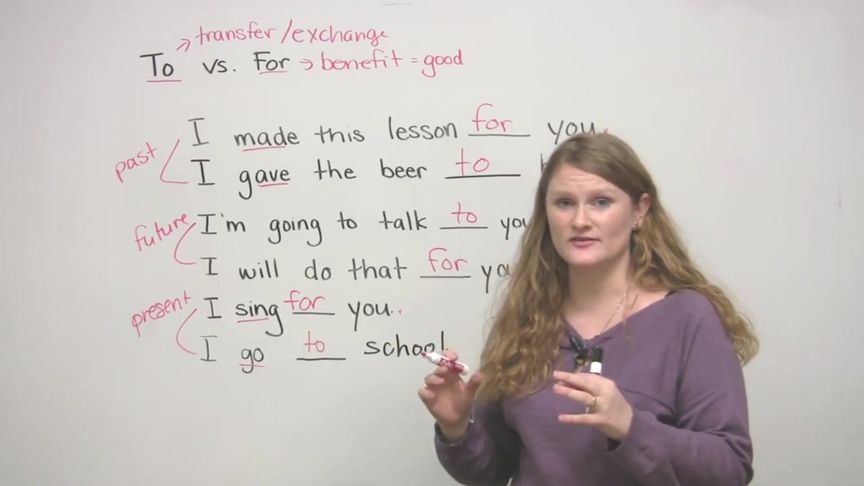 → transfer/exchange
To vs. For → benefit = good
past
I made this lesson for you.
I gave the beer to
future
I'm going to talk to you
I will do that for
present
I sing for you.
I go to school